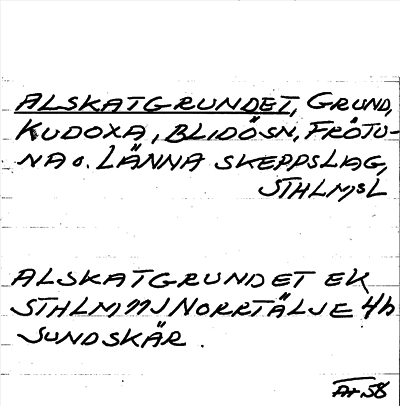 ALSKATGRUNDET, GRUND,
KUDOXA, BLIDÖSN, FRÖTU-
NA o. LÄNNA SKEPPSLAG,
STHLMSL
ALSKATGRUNDET EK
STHLM 77J NORRTÄLJE 4h
SUNDSKÄR.
58